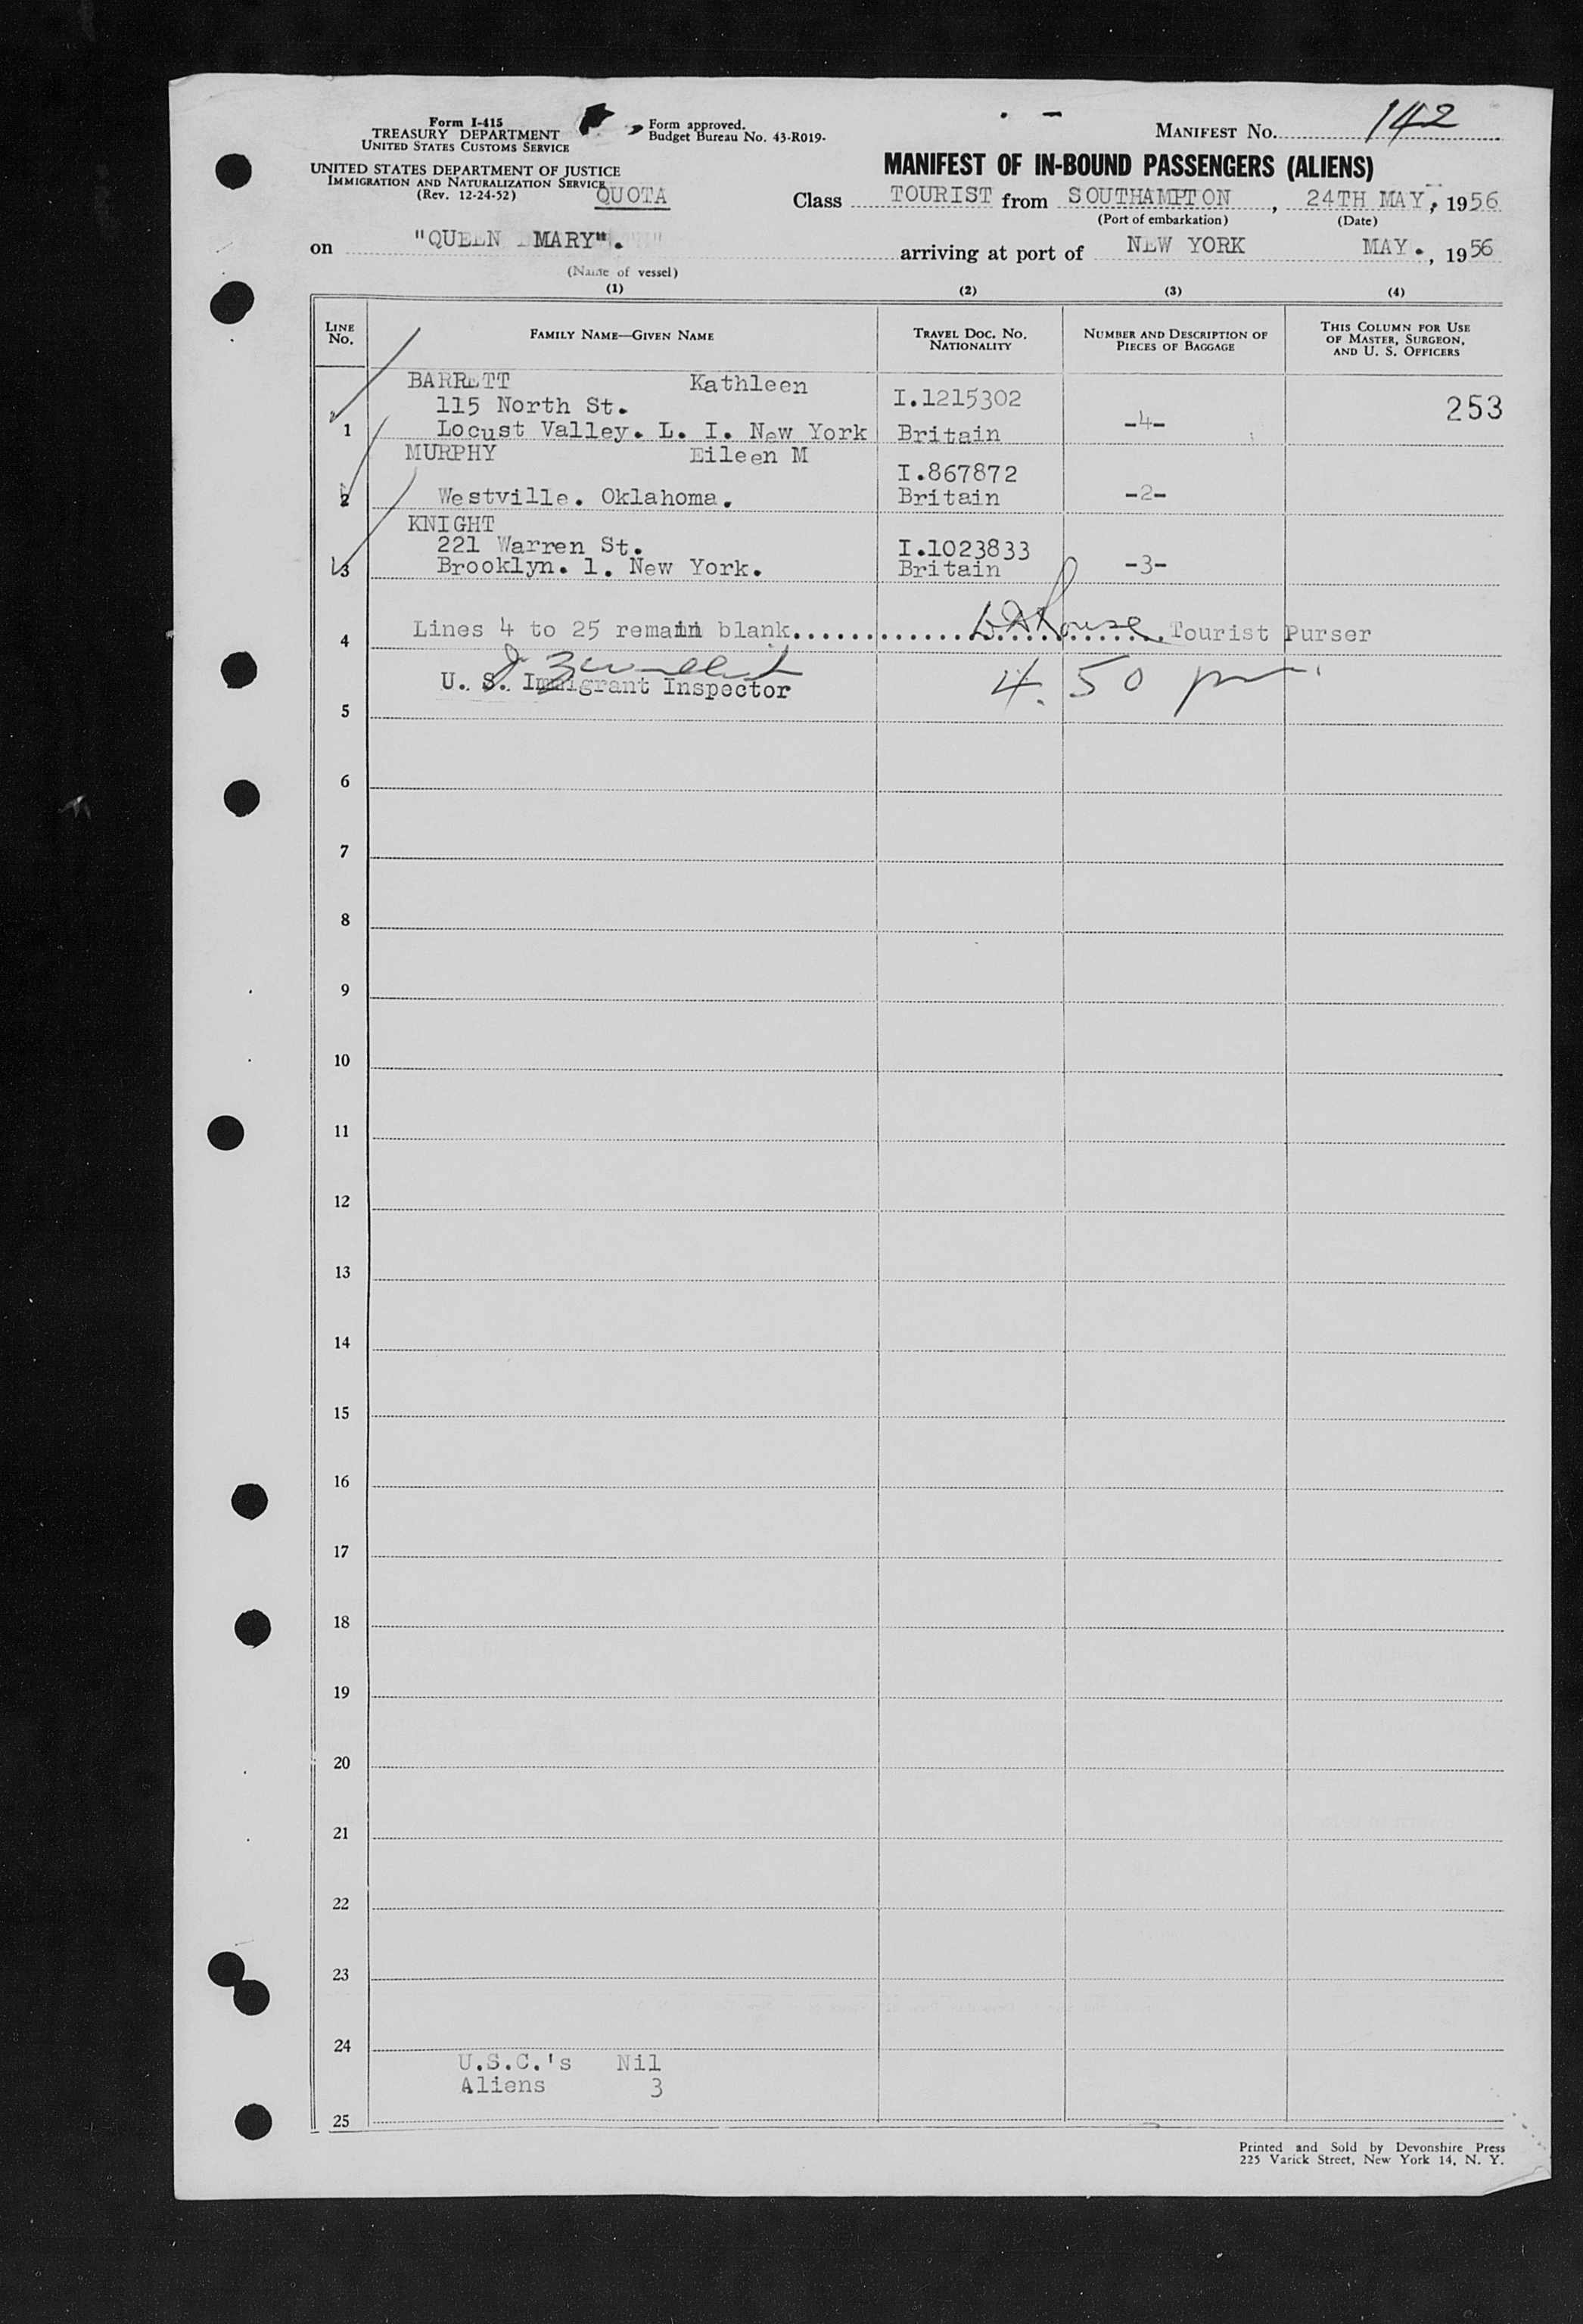 Form I-415
TREASURY DEPARTMENT
UNITED STATES CUSTOMS SERVICE
Form approved.
Budget Bureau No. 43-R019-
MANIFEST No. 142
UNITED STATES DEPARTMENT OF JUSTICE
IMMIGRATION AND NATURALIZATION SERVICE
(Rev. 12-24-52)
QUOTA
MANIFEST OF IN-BOUND PASSENGERS (ALIENS)
Class TOURIST from SOUTHAMPTON, 24TH MAY, 1956
(Port of embarkation) (Date)
on "QUEEN MARY". arriving at port of NEW YORK MAY., 1956
(Name of vessel)
(1) (2) (3) (4)
LINE No.
FAMILY NAME—GIVEN NAME
TRAVEL DOC. NO. NATIONALITY
NUMBER AND DESCRIPTION OF PIECES OF BAGGAGE
THIS COLUMN FOR USE OF MASTER, SURGEON, AND U. S. OFFICERS
BARRETT Kathleen I.1215302 253
115 North St.
1 Locust Valley. L. I. New York Britain -4-
MURPHY Eileen M I.867872
2 Westville. Oklahoma. Britain -2-
KNIGHT
221 Warren St. I.1023833
3 Brooklyn. 1. New York. Britain -3-
4 Lines 4 to 25 remain blank. Tourist Purser
U. S. Immigrant Inspector 4.50 pm
5
6
7
8
9
10
11
12
13
14
15
16
17
18
19
20
21
22
23
24
U.S.C.'s Nil
Aliens 3
25
Printed and Sold by Devonshire Press
225 Varick Street, New York 14, N. Y.